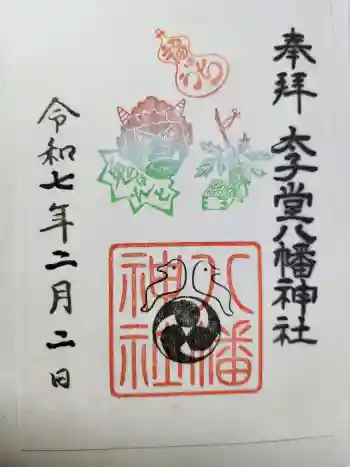 奉拝
太子堂八幡神社
令和七年二月二日
八幡
神社
福